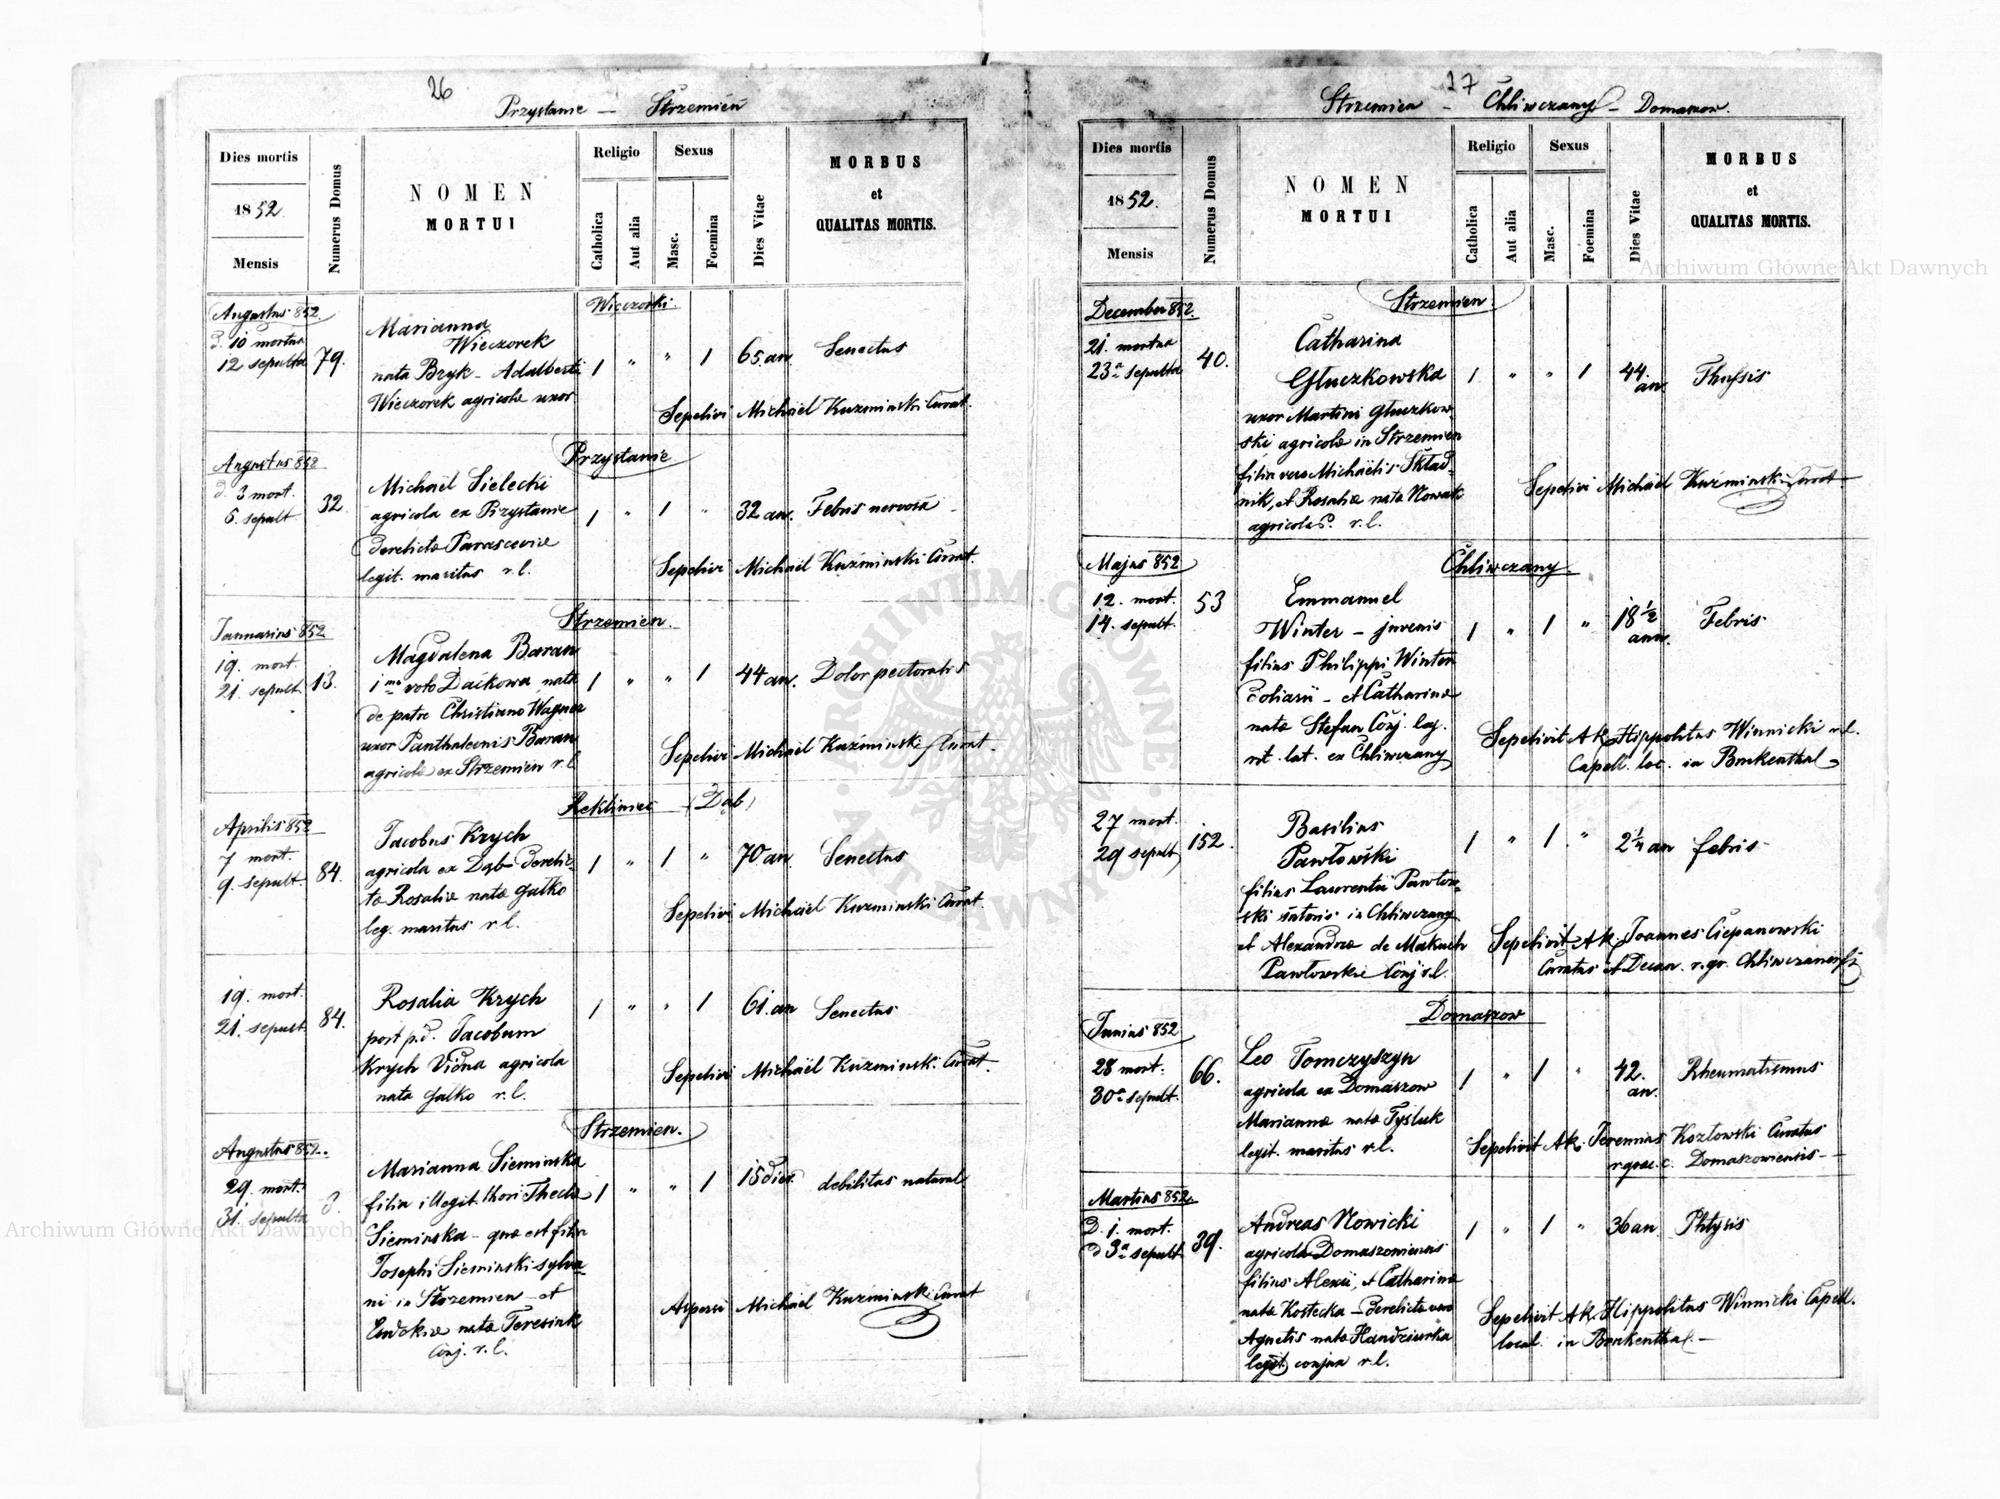 26
Przystanie — Strzemień
Dies mortis
1852.
Mensis
Numerus Domus
NOMEN
MORTUI
Religio
Catholica
Aut alia
Sexus
Masc.
Foemina
Dies Vitae
MORBUS
et
QUALITAS MORTIS.
Wieczorki.
Augustus 852.
d. 10 mortua
12 sepulta
79.
Marianna
Wieczorek
nata Bzyk - Adalberti
Wieczorek agricolæ uxor
1 " " 1
65 an.
Senectus
Sepelivi Michaël Kuzminski Curat.
Przystanie
Augustus 852
d. 3 mort.
5. sepult.
32
Michaël Sielecki
agricola ex Przystanie
derelictæ Parasceviæ
legit. maritus r. l.
1 " 1 "
32 an.
Febris nervosa
Sepelivi Michaël Kuzminski Curat.
Strzemien.
Januarius 852
19. mort.
21. sepult.
13.
Magdalena Baran
1mo voto Daćkowa, nata
de patre Christiano Wagner
uxor Panthaleonis Baran
agricolæ ex Strzemien r. l.
1 " " 1
44 an.
Dolor pectoralis
Sepelivi Michaël Kuzminski Curat.
Reklinec (Dąb)
Aprilis 852
7 mort.
9. sepult.
84.
Jacobus Krych
agricola ex Dąb derelic-
tæ Rosaliæ natæ Gałko
leg. maritus r. l.
1 " 1 "
70 an
Senectus
Sepelivi Michaël Kuzminski Curat.
19. mort.
21. sepult
84.
Rosalia Krych
post p.d. Jacobum
Krych Vidua agricola
nata Gałko r. l.
1 " " 1
61. an
Senectus
Sepelivi Michaël Kuzminski. Curat.
Strzemien.
Augustus 852.
29. mort.
31. sepulta
3.
Marianna Sieminska
filia illegit. thori Theclæ
Sieminska - quæ est filia
Josephi Sieminski sylva-
ni in Strzemien et
Eudokiæ natæ Teresiak
Conj. r. l.
1 " " 1
15 dies.
debilitas natural.
Aspersi Michaël Kuzminski Curat
17
Strzemien - Chliwczany - Domaszow.
Dies mortis
1852.
Mensis
Numerus Domus
NOMEN
MORTUI
Religio
Catholica
Aut alia
Sexus
Masc.
Foemina
Dies Vitae
MORBUS
et
QUALITAS MORTIS.
Strzemien.
December 852.
21. mortua
23a sepulta
40.
Catharina
Głuczkowska
uxor Martini Głuczkow-
ski agricolæ in Strzemien
filia vero Michaëlis Skład-
nik, et Rosaliæ natæ Nowak
agricolæ. r. l.
1 " " 1
44.
an.
Sepelivi Michaël Kuzminski Curat
Chliwczany.
Majus 852
12. mort.
14. sepult.
53
Emmanuel
Winter - juvenis
filius Philippi Winter
doliarii - et Catharinæ
natæ Stefan Conj. leg.
rit. lat. ex Chliwczany
1 " 1 "
18 1/2
ann.
Febris
Sepelivit Ar. Hippolitus Winnicki r. l.
Capell. loc. in Brukenthal
27 mort.
29 sepult.
152.
Basilius
Pawłowski
filius Laurentii Pawłow-
ski satoris in Chliwczany
et Alexandræ de Makuch
Pawłowskie Conj r. l.
1 " 1 "
2 1/4 an
febris
Sepelivit Ar. Joannes Ciepanowski
Curatus et Decan. r. gr. Chliwczanensis
Domaszow
Junius 852
28 mort.
30a sepult.
66.
Leo Tomczyszyn
agricola ex Domaszow
Mariannæ natæ Tysluk
legit. maritus r. l.
1 " 1 "
42.
an.
Rheumatismus
Sepelivit Ar. Jeremias Kozłowski Curatus
r. græc. c. Domaszowiensis
Martius 852.
D. 1. mort.
d 3a sepult.
39.
Andreas Nowicki
agricola Domaszowiensis
filius Alexii, et Catharinæ
natæ Kostecka - derelictæ vero
Agnetis natæ Handziurka
legit. conjux r. l.
1 " 1 "
36 an
Phtysis
Sepelivit Ar. Hippolitus Winnicki Capell.
local. in Brukenthal.
Archiwum Główne Akt Dawnych
Archiwum Główne Akt Dawnych
ARCHIWUM GŁÓWNE AKT DAWNYCH